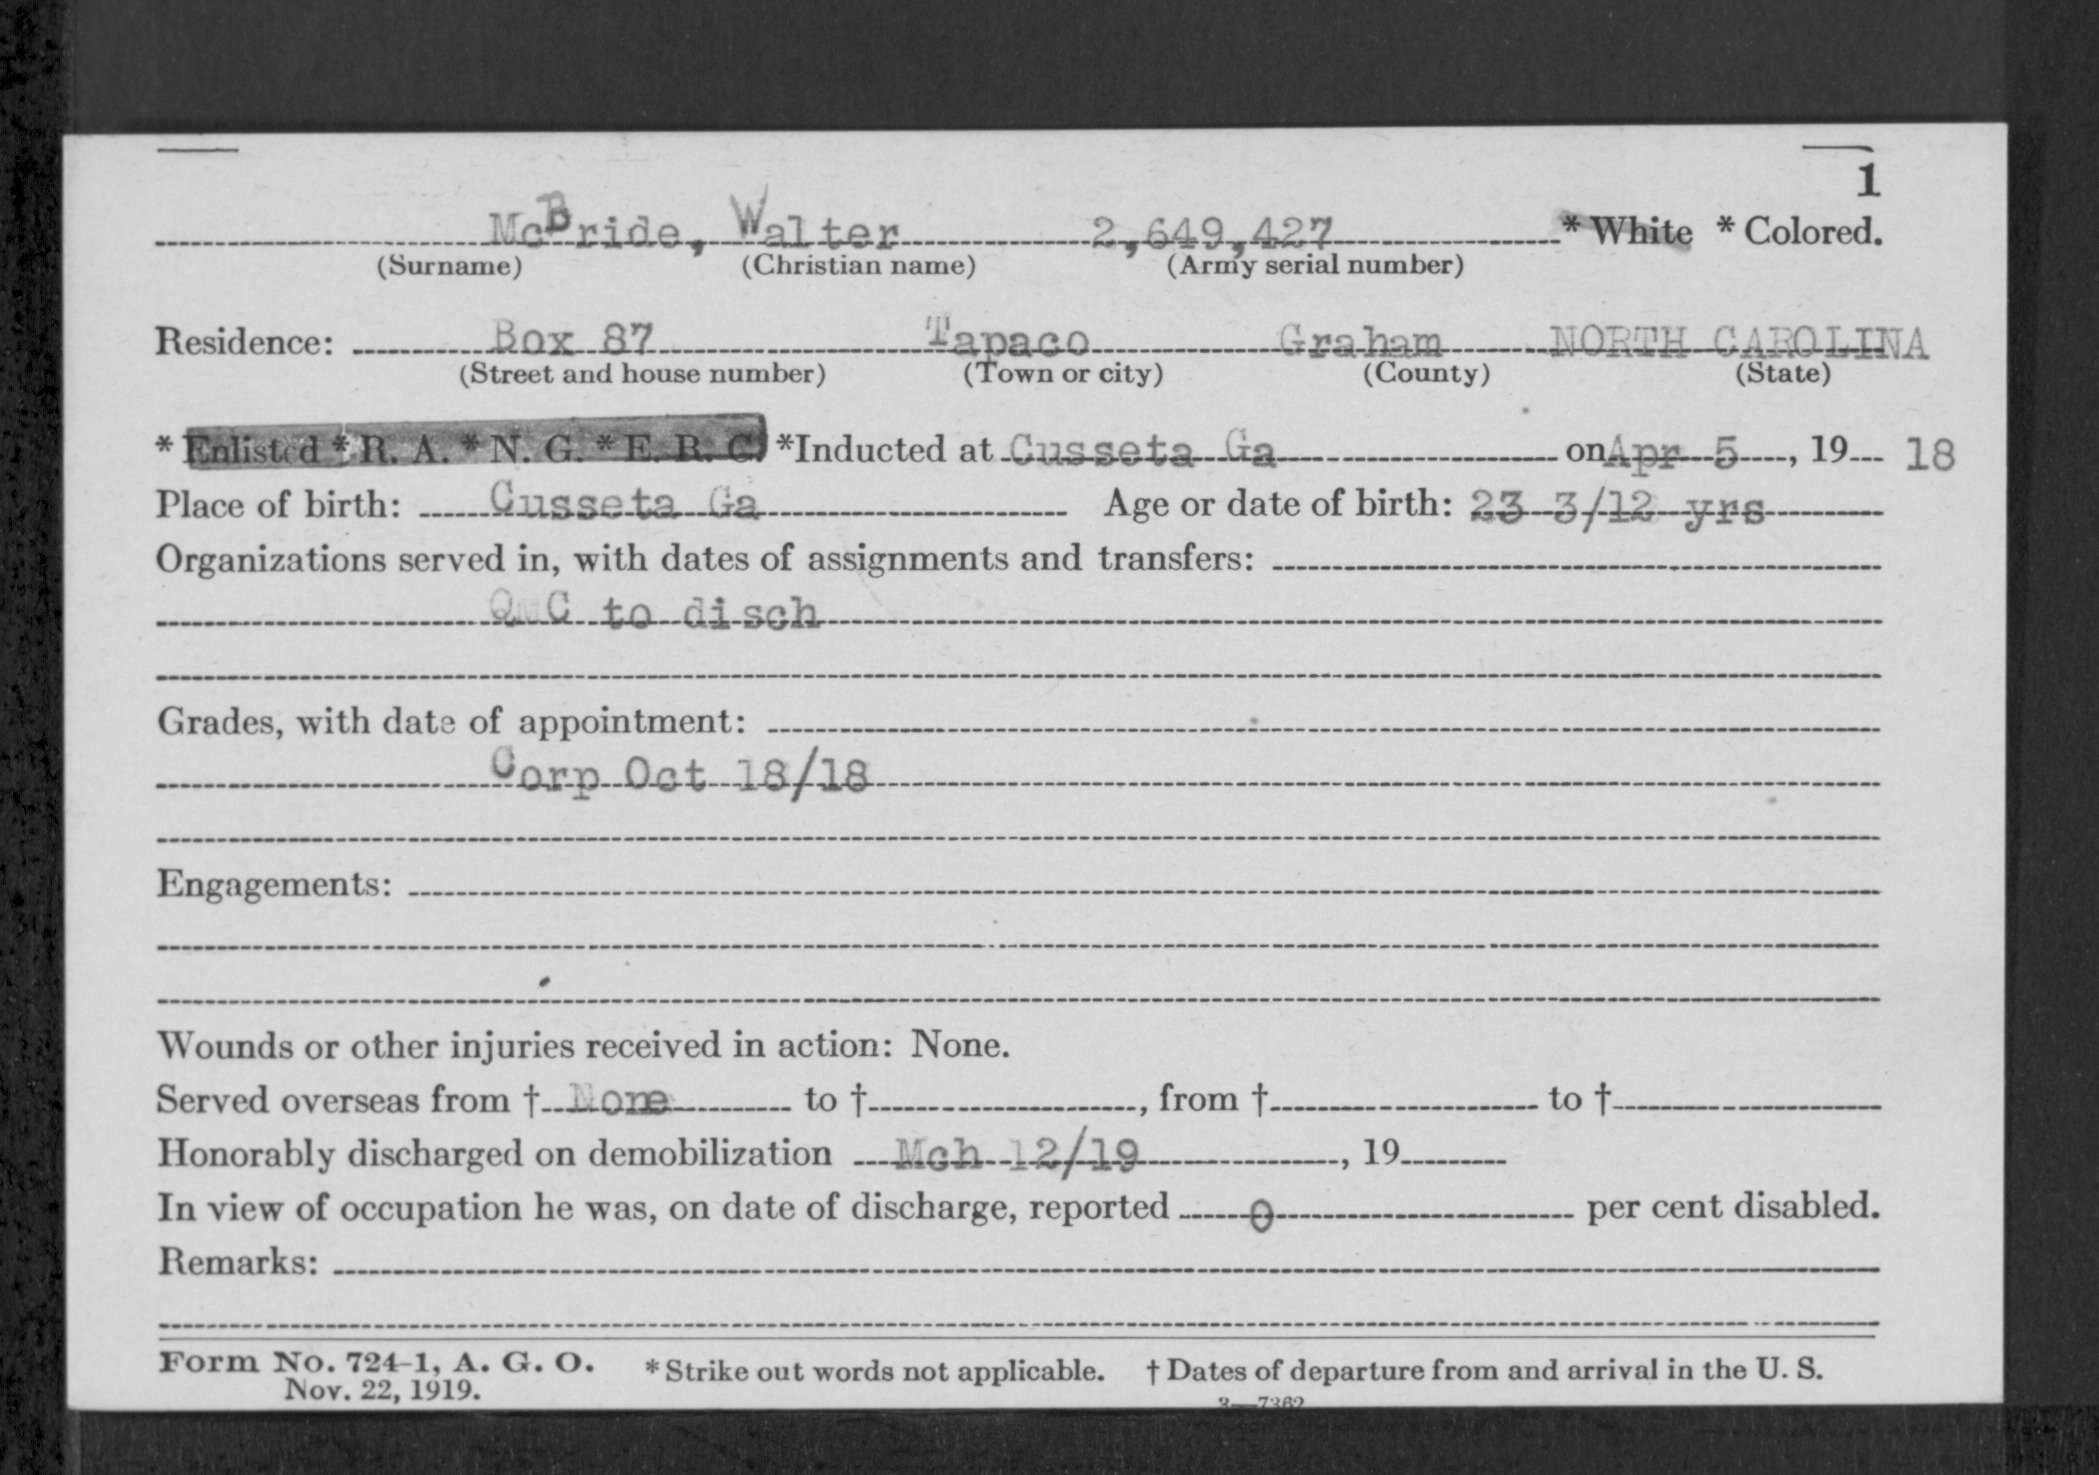 1
McBride, Walter 2,649,427 * White * Colored.
(Surname) (Christian name) (Army serial number)
Residence: Box 87 Tapaco Graham NORTH CAROLINA
(Street and house number) (Town or city) (County) (State)
* Enlisted * R. A. * N. G. * E. R. C. *Inducted at Cusseta Ga on Apr 5, 19 18
Place of birth: Cusseta Ga Age or date of birth: 23 3/12 yrs
Organizations served in, with dates of assignments and transfers:
QMC to disch
Grades, with date of appointment:
Corp Oct 18/18
Engagements:
Wounds or other injuries received in action: None.
Served overseas from † None to †, from † to †
Honorably discharged on demobilization Mch 12/19, 19
In view of occupation he was, on date of discharge, reported 0 per cent disabled.
Remarks:
Form No. 724-1, A. G. O. * Strike out words not applicable. † Dates of departure from and arrival in the U. S.
Nov. 22, 1919.
3—7362